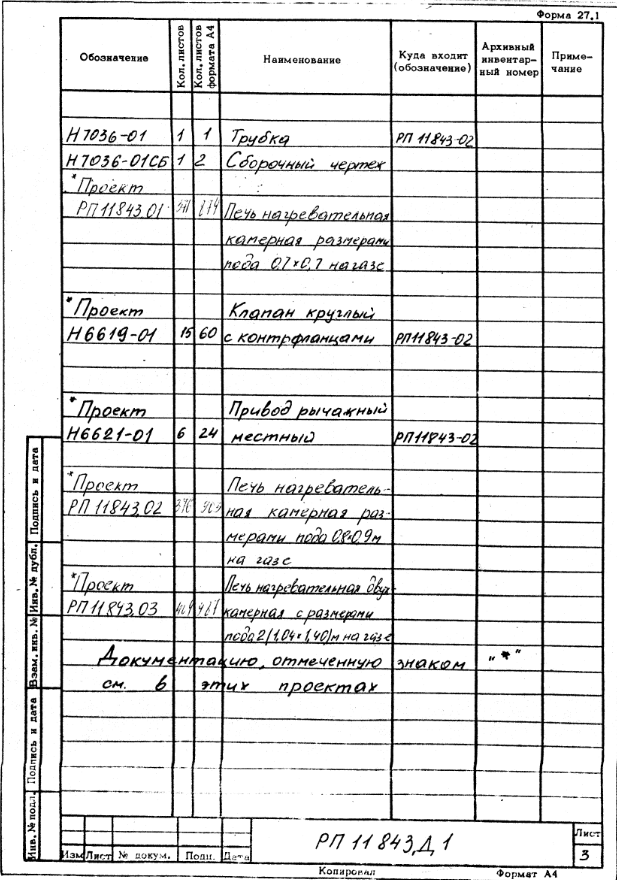 Форма 27.1
Обозначение Кол. листов Кол. листов формата А4 Наименование Куда входит (обозначение) Архивный инвентарный номер Примечание
Н7036-01 1 1 Трубка РП 11843-02
Н7036-01СБ 1 2 Сборочный чертеж
*Проект
РП 11843.01 Печь нагревательная
камерная размерами
пода 0,7×0,7 на газе
*Проект Клапан круглый
Н6619-01 15 60 с контрфланцами РП11843-02
*Проект Привод рычажный
Н6621-01 6 24 местный РП11843-02
*Проект Печь нагреватель-
РП 11843.02 ная камерная раз-
мерами пода 0,8×0,9м
на газе
*Проект Печь нагревательная двух-
РП 11843.03 камерная с размерами
пода 2(1,04×1,40)м на газе
Документацию, отмеченную знаком "*"
см. в этих проектах
Инв. № подл. Подпись и дата Взам. инв. № Инв. № дубл. Подпись и дата
РП 11843.Д1
Лист
3
Изм Лист № докум. Подп. Дата
Копировал Формат А4